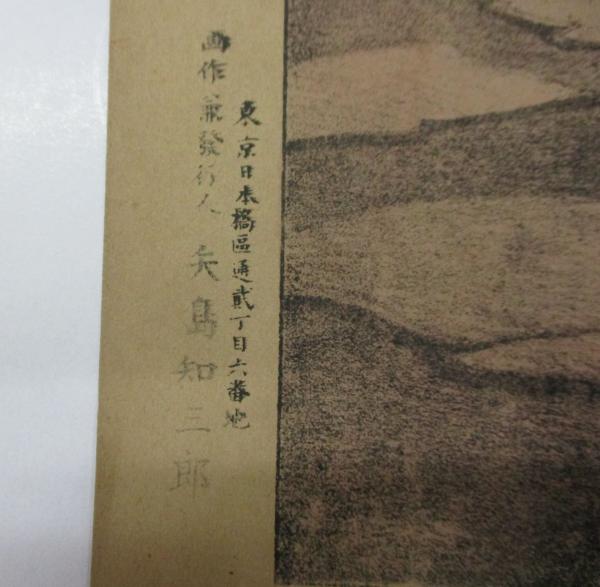 東京日本橋區通貳丁目六番地
画作兼發行人 矢島知三郎